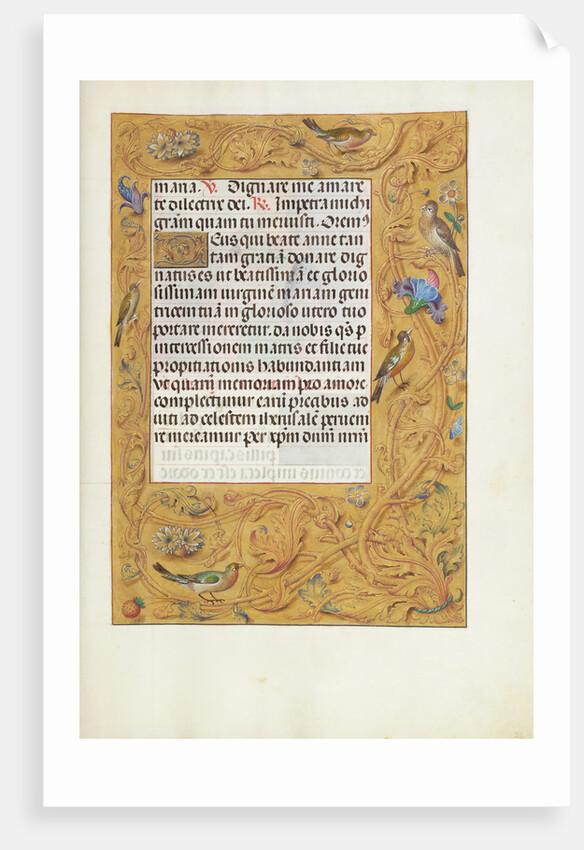 maria. V. Dignare me amare
te dilectrix dei. R. Impetra michi
grām quam tu meruisti. Orem9
Deus qui beate anne tan
tam gratiā donare dig
natus es ut beatissimā et glorio
sissimam uirginē mariam geni
tricem tuā in glorioso utero tuo
portare mereretur. da nobis q̄s p
intercessionem matris et filie tue
propitiationis habundantiam
ut quarū memoriam pro amore
complectimur earū precibus ad
iuti ad celestem iherusalē peruem
re mereamur per xp̄m dn̄m nr̄m